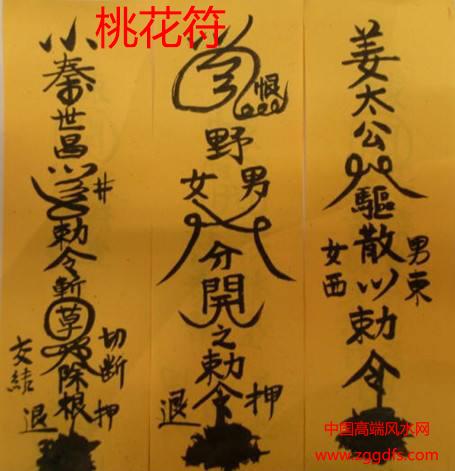 桃花符
姜太公
驅散勅令
男東
女西
恨
野
男
女
分開之勅令
押
退
秦世昌
井
勅令斬草除根
切断
押
交結
退
中国高端风水网
www.zggdfs.com